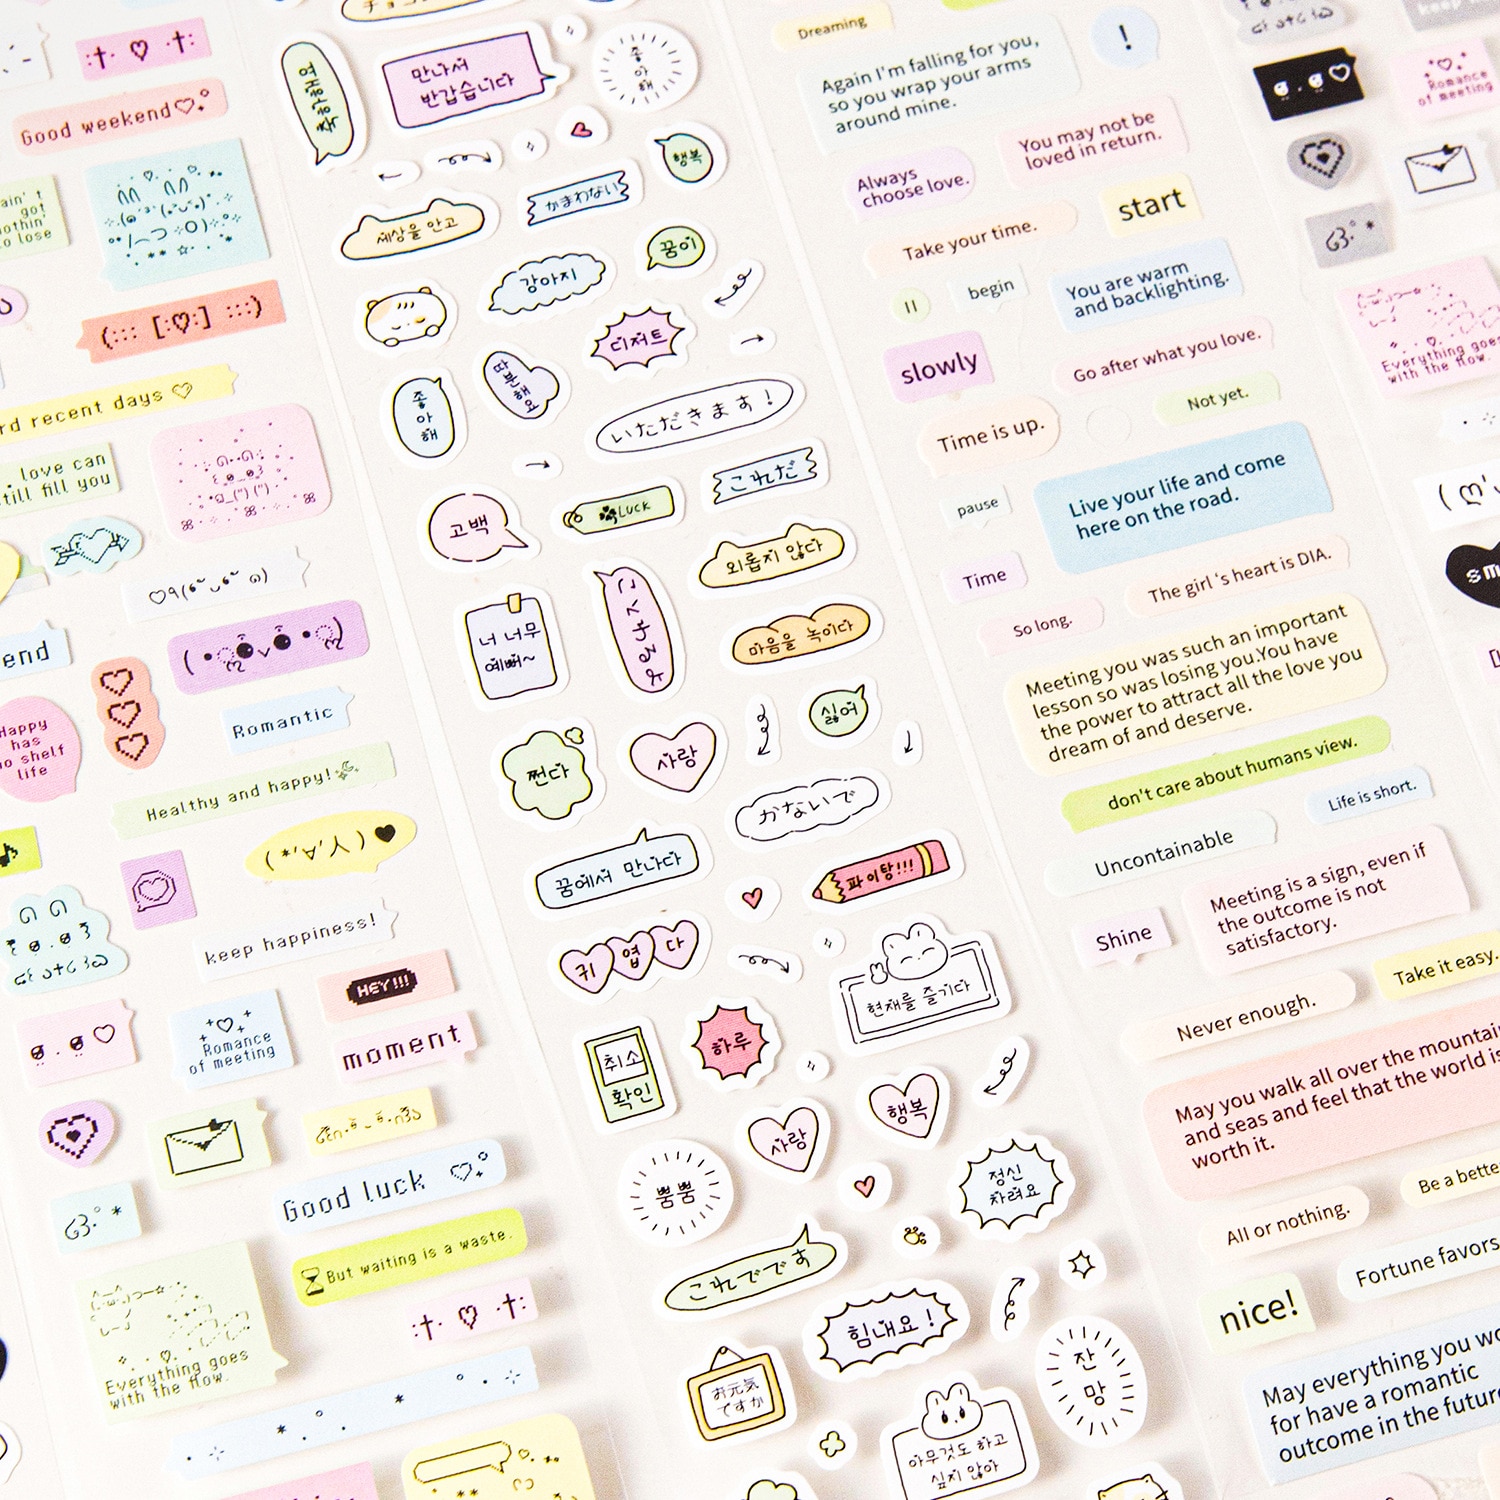 Good weekend
ain' t
got
nothin'
to lose
rd recent days
love can
till fill you
end
Romantic
Happy
has
no shelf
life
Healthy and happy!
keep happiness!
HEY!!!
Romance
of meeting
moment
Good luck
But waiting is a waste.
Everything goes
with the flow.
착하해여
만나서
반갑습니다
좋아해
행복
かまわない
세상을 안고
꿈이
강아지
디저트
따분해요
좋아해
いただきます!
これだ
고백
LUCK
외롭지 않다
너 너무
예뻐~
마음을 녹이다
싫어
쩐다
사랑
かないで
꿈에서 만나다
파이팅!!!
귀엽다
현재를 즐기다
취소
확인
하루
사랑
행복
뿜뿜
정신
차려요
これでです
힘내요!
お元気
ですか
잔망
아무것도 하고
싶지 않아
Dreaming
!
Again I'm falling for you,
so you wrap your arms
around mine.
You may not be
loved in return.
Always
choose love.
start
Take your time.
begin
You are warm
and backlighting.
slowly
Go after what you love.
Not yet.
Time is up.
Live your life and come
here on the road.
pause
Time
The girl 's heart is DIA.
So long.
Meeting you was such an important
lesson so was losing you.You have
the power to attract all the love you
dream of and deserve.
don't care about humans view.
Life is short.
Uncontainable
Meeting is a sign, even if
the outcome is not
satisfactory.
Shine
Take it easy.
Never enough.
May you walk all over the mountai
and seas and feel that the world is
worth it.
All or nothing.
Be a bette
Fortune favors
nice!
May everything you wo
for have a romantic
outcome in the future
Romance
of meeting
Everything goes
with the flow.